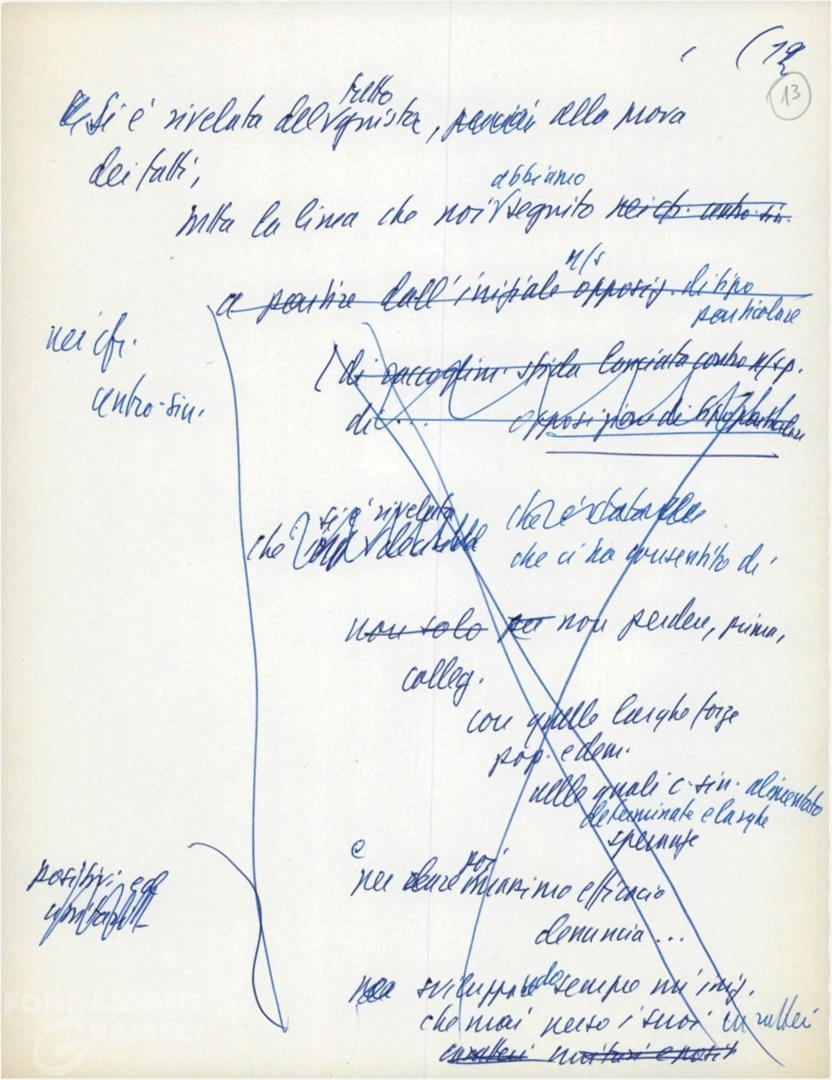 (12
13
Si è rivelata del tutto giusta, alla prova
dei fatti,
tutta la linea che noi abbiamo seguito nei cfr. centro-sin.
a partire dall'iniziale n/s opposiz. di tipo
particolare
nei cfr.
centro-sin.
(di raccoglim. sfida lanciata contro n/sp.
di ... opposizione di tipo particolare
che si è rivelata che è stata
che ci ha consentito di
non solo per non perdere, prima,
colleg.
con quelle larghe forze
pop. e dem.
nelle quali c-sin. alimentato
determinate e larghe
speranze
e
poi
per dare massimo efficacia
denuncia...
positivi
sviluppando sempre più iniz.
che mai perso i suoi caratteri
caratteri unitari e posit.